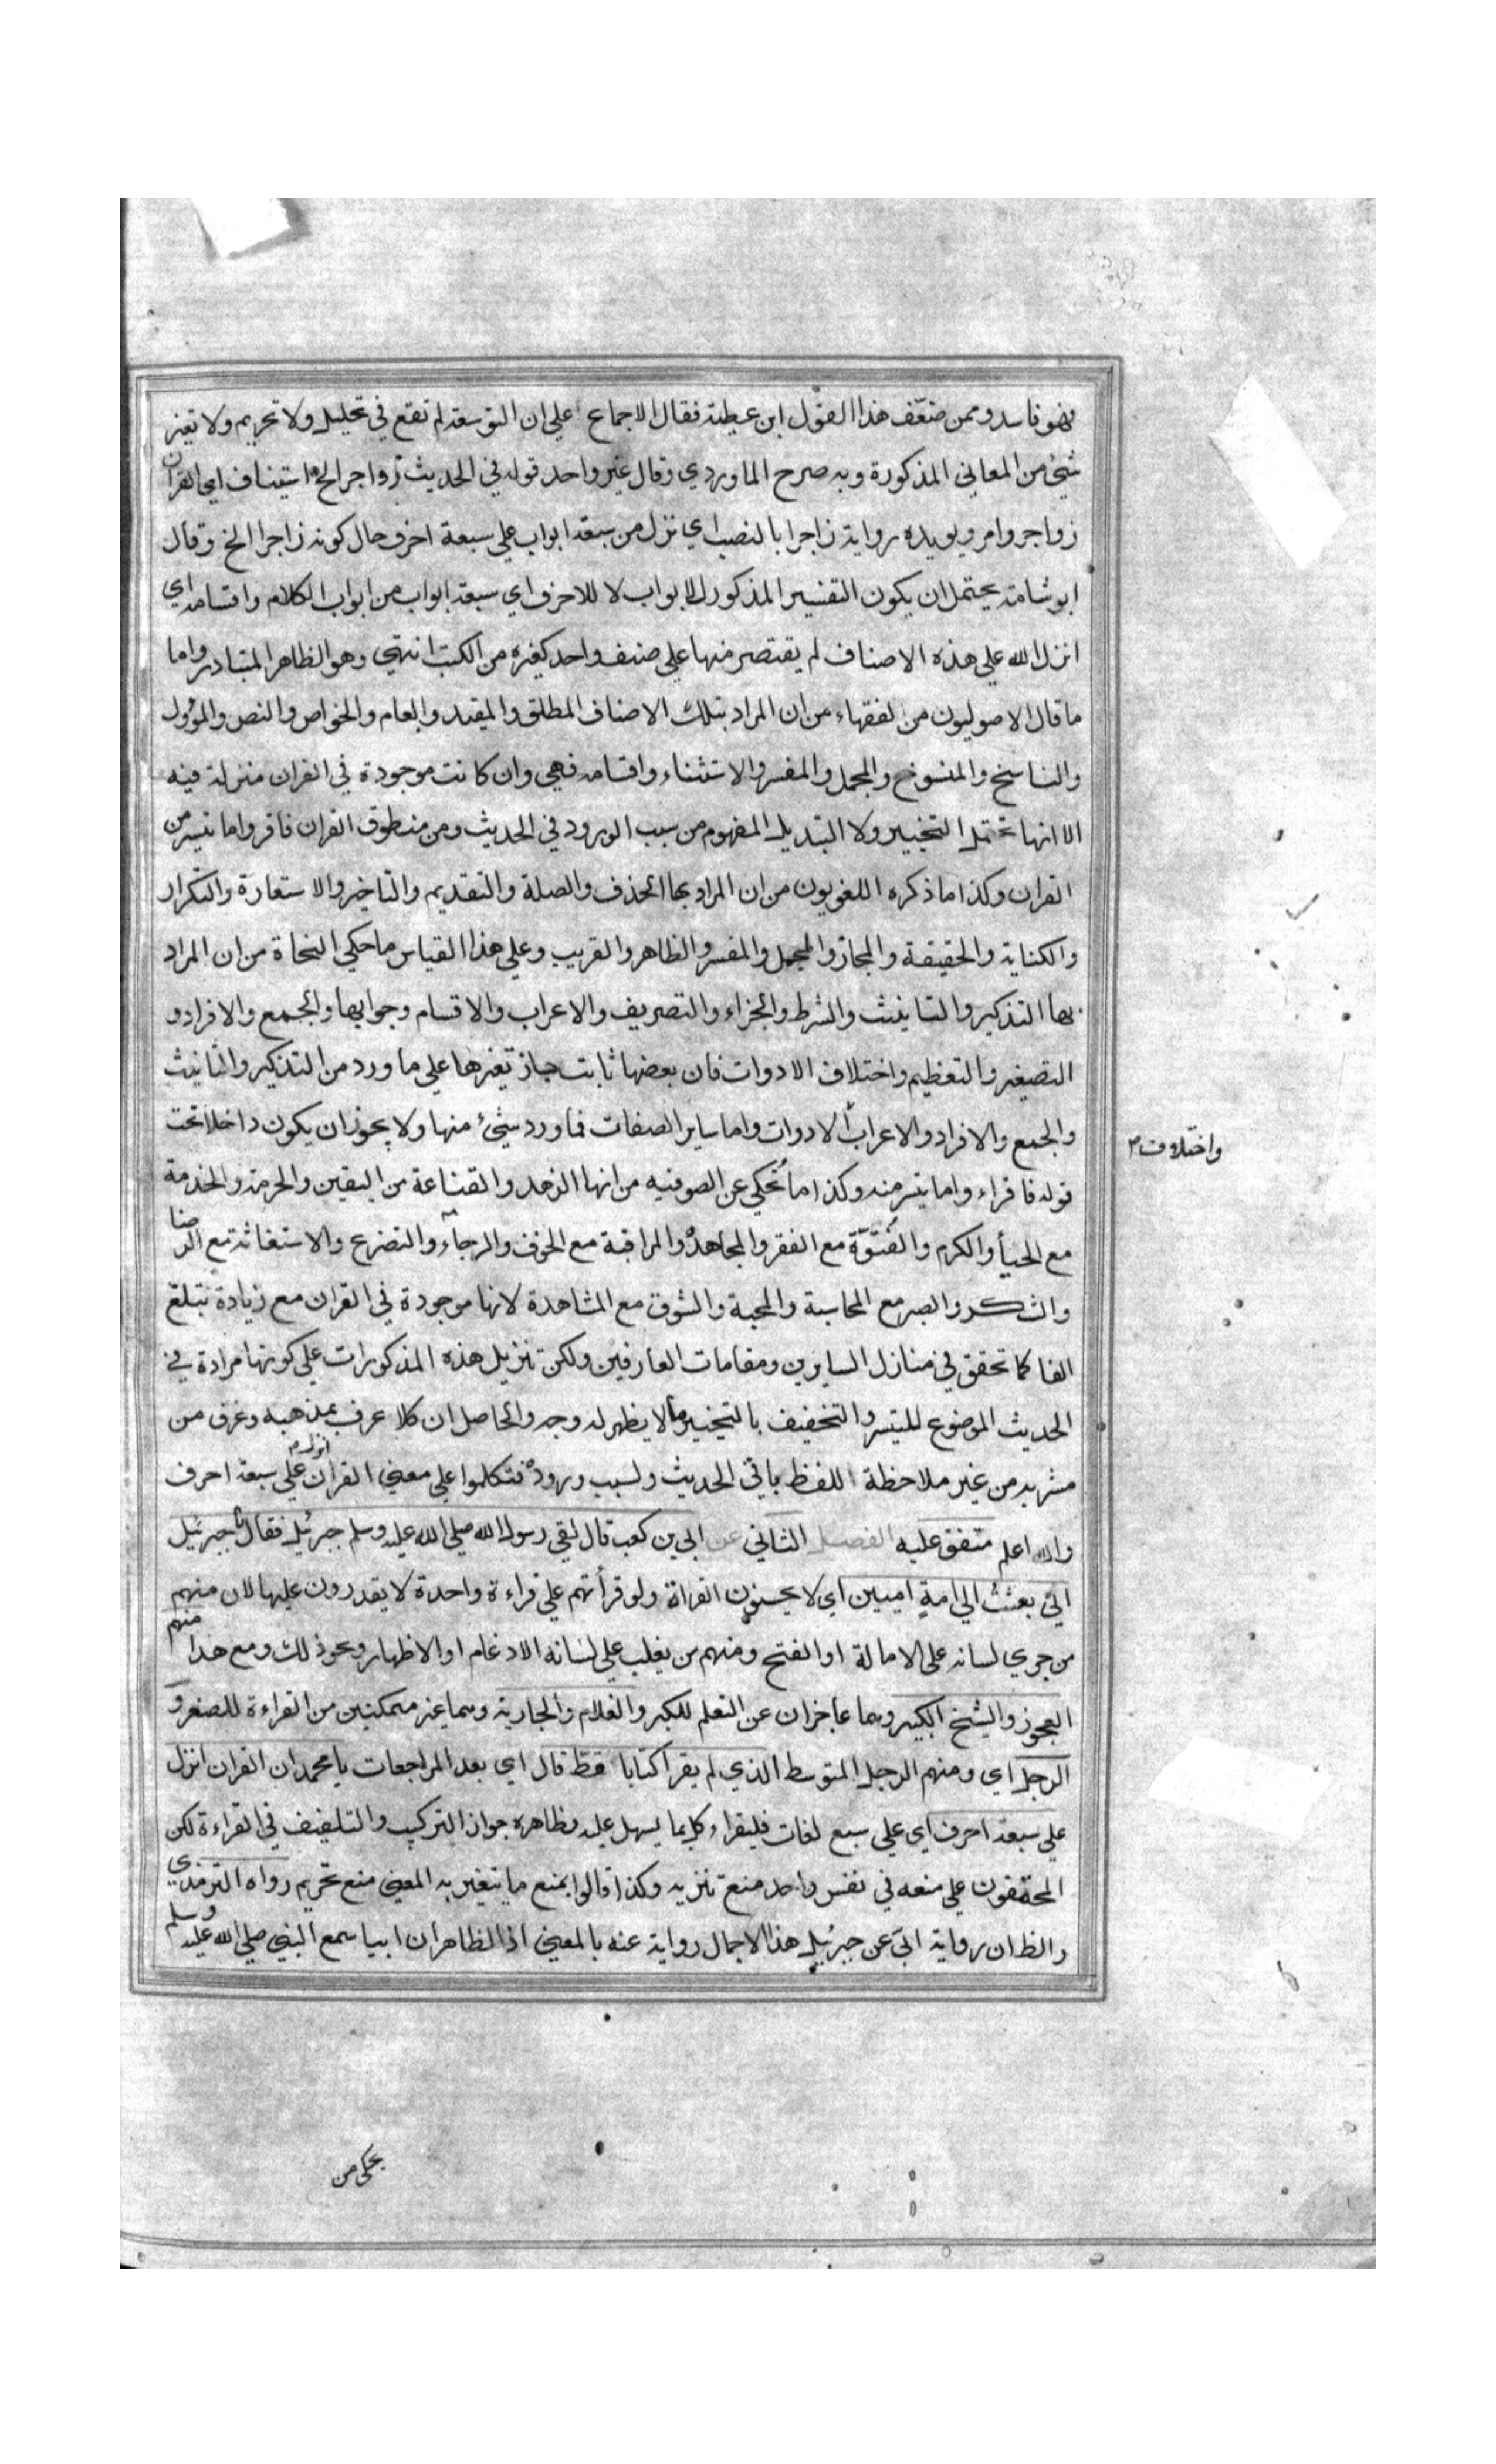 فهو فاسد وممن ضعّف هذا القول ابن عطية فقال الاجماع علي ان التوسعة لم تقع في تحليل ولا تحريم ولا تغير
شئ من المعاني المذكورة وبه صرح الماوردي وقال غير واحد قوله في الحديث زواجر الخ استيناف اي القران
زواجر وامر ويويده رواية زاجرا بالنصب اي نزل من سبعة ابواب علي سبعة احرف حال كونه زاجرا الخ وقال
ابو شامة يحتمل ان يكون التفسير المذكور للابواب لا للاحرف اي سبعة ابواب من ابواب الكلام واقسامه اي
انزل الله علي هذه الاصناف لم يقتصر منها علي صنف واحد كغيره من الكتب انتهي وهو الظاهر المتبادر واما
ما قال الاصوليون من الفقهاء من ان المراد بتلك الاصناف المطلق والمقيد والعام والخواص والنص والمؤول
والناسخ والمنسوخ والمجمل والمفسر والاستثناء واقسامه فهي وان كانت موجودة في القران منزلة فيه
الا انها تحتمل التخيير ولا التبديل المفهوم من سبب الورود في الحديث ومن منطوق القران فاقروا ما تيسر من
القران وكذا ما ذكره اللغويون من ان المراد بها الحذف والصلة والتقديم والتاخير والاستعارة والتكرار
والكناية والحقيقة والمجاز والمجمل والمفسر والظاهر والقريب وعلي هذا القياس ما حكي النحاة من ان المراد
بها التذكير والتانيث والشرط والجزاء والتصريف والاعراب والاقسام وجوابها والجمع والافراد و
التصغير والتعظيم واختلاف الادوات فان بعضها ثابت جاز تغيرها علي ما ورد من التذكير والتانيث
والجمع والافراد والاعراب الادوات واما ساير الصفات فما ورد شئ منها ولا يجوز ان يكون داخلا تحت
واختلاف م
قوله فاقراء واما تيسر منه وكذا ما يُحكي عن الصوفيه من انها الزهد والقناعة من اليقين والحرمة والخدمة
مع الحيأ والكرم والفُتوّة مع الفقر والمجاهدة والمراقبة مع الخوف والرجاء والتضرع والاستغاثة مع الرضا
والشكر والصبر مع المحاسبة والمحبة والشوق مع المشاهدة لانها موجودة في القران مع زيادة تبلغ
الفا كما تحقق في منازل السايرين ومقامات العارفين ولكن تنزيل هذه المذكورات علي كونها مرادة في
الحديث الموضوع لليتسر والتخفيف بالتخيير ما لا يظهر له وجه والحاصل ان كلا عرف بمذهبه وغرف من
مشربه من غير ملاحظة اللفظ باقي الحديث ولسبب وروده فتكلموا علي معني القران انزل م علي سبعة احرف
والله اعلم متفق عليه الفصل الثاني عن ابي بن كعب قال لقي رسول الله صلي الله عليه وسلم جبرئيل فقال يا جبرئيل
اني بعثتُ الي امةٍ اميين اي لا يحسنون القراة ولو قرأتهم علي قراءة واحدة لا يقدرون عليها لان منهم
من جري لسانه علي الامالة او الفتح ومنهم من يغلب علي لسانه الادغام او الاظهار ونحو ذلك ومع هذا منهم
العجوز والشيخ الكبير وهما عاجزان عن التعلم للكبر والغلام والجارية وهما غير متمكنين من القراءة للصغر و
الرجل اي ومنهم الرجل المتوسط الذي لم يقرا كتابا قط قال اي بعد المراجعات يا محمد ان القران انزل
علي سبعة احرف اي علي سبع لغات فليقراء كل بما يسهل عليه وظاهره جواز التركيب والتلفيف في القراءة لكن
المحققون علي منعه في نفس واحد منع تنزيه وكذا قالوا بمنع ما يتغير به المعني منع تحريم رواه الترمذي
والظ ان رواية ابي عن جبرئيل هذا الاجمال رواية عنه بالمعني اذ الظاهر ان ابيا سمع النبي صلي الله عليه وسلم
يحكي من